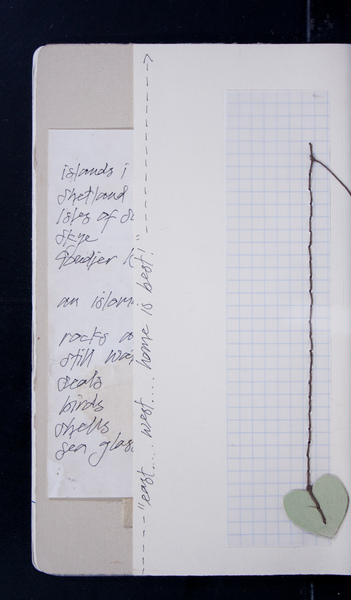 islands i
Shetland
Isles of Sc
Skye
an islan
rocks a
still wa
seals
birds
shells
sea glas
"east... west.... home is best!"